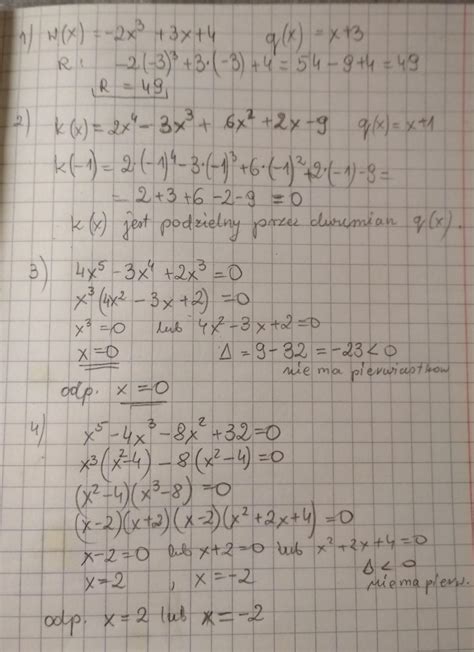 1) W(x) = -2x³ + 3x + 4 q(x) = x+3
R: -2(-3)³ + 3·(-3) + 4 = 54 - 9 + 4 = 49
R = 49
2) k(x) = 2x⁴ - 3x³ + 6x² + 2x - 9 q(x) = x+1
k(-1) = 2·(-1)⁴ - 3·(-1)³ + 6·(-1)² + 2·(-1) - 9 =
= 2 + 3 + 6 - 2 - 9 = 0
k(x) jest podzielny przez dwumian q(x).
3) 4x⁵ - 3x⁴ + 2x³ = 0
x³(4x² - 3x + 2) = 0
x³ = 0 lub 4x² - 3x + 2 = 0
x = 0 Δ = 9 - 32 = -23 < 0
nie ma pierwiastków
odp. x = 0
4) x⁵ - 4x³ - 8x² + 32 = 0
x³(x² - 4) - 8(x² - 4) = 0
(x² - 4)(x³ - 8) = 0
(x-2)(x+2)(x-2)(x² + 2x + 4) = 0
x - 2 = 0 lub x + 2 = 0 lub x² + 2x + 4 = 0
x = 2 , x = -2 Δ < 0
nie ma pierw.
odp. x = 2 lub x = -2